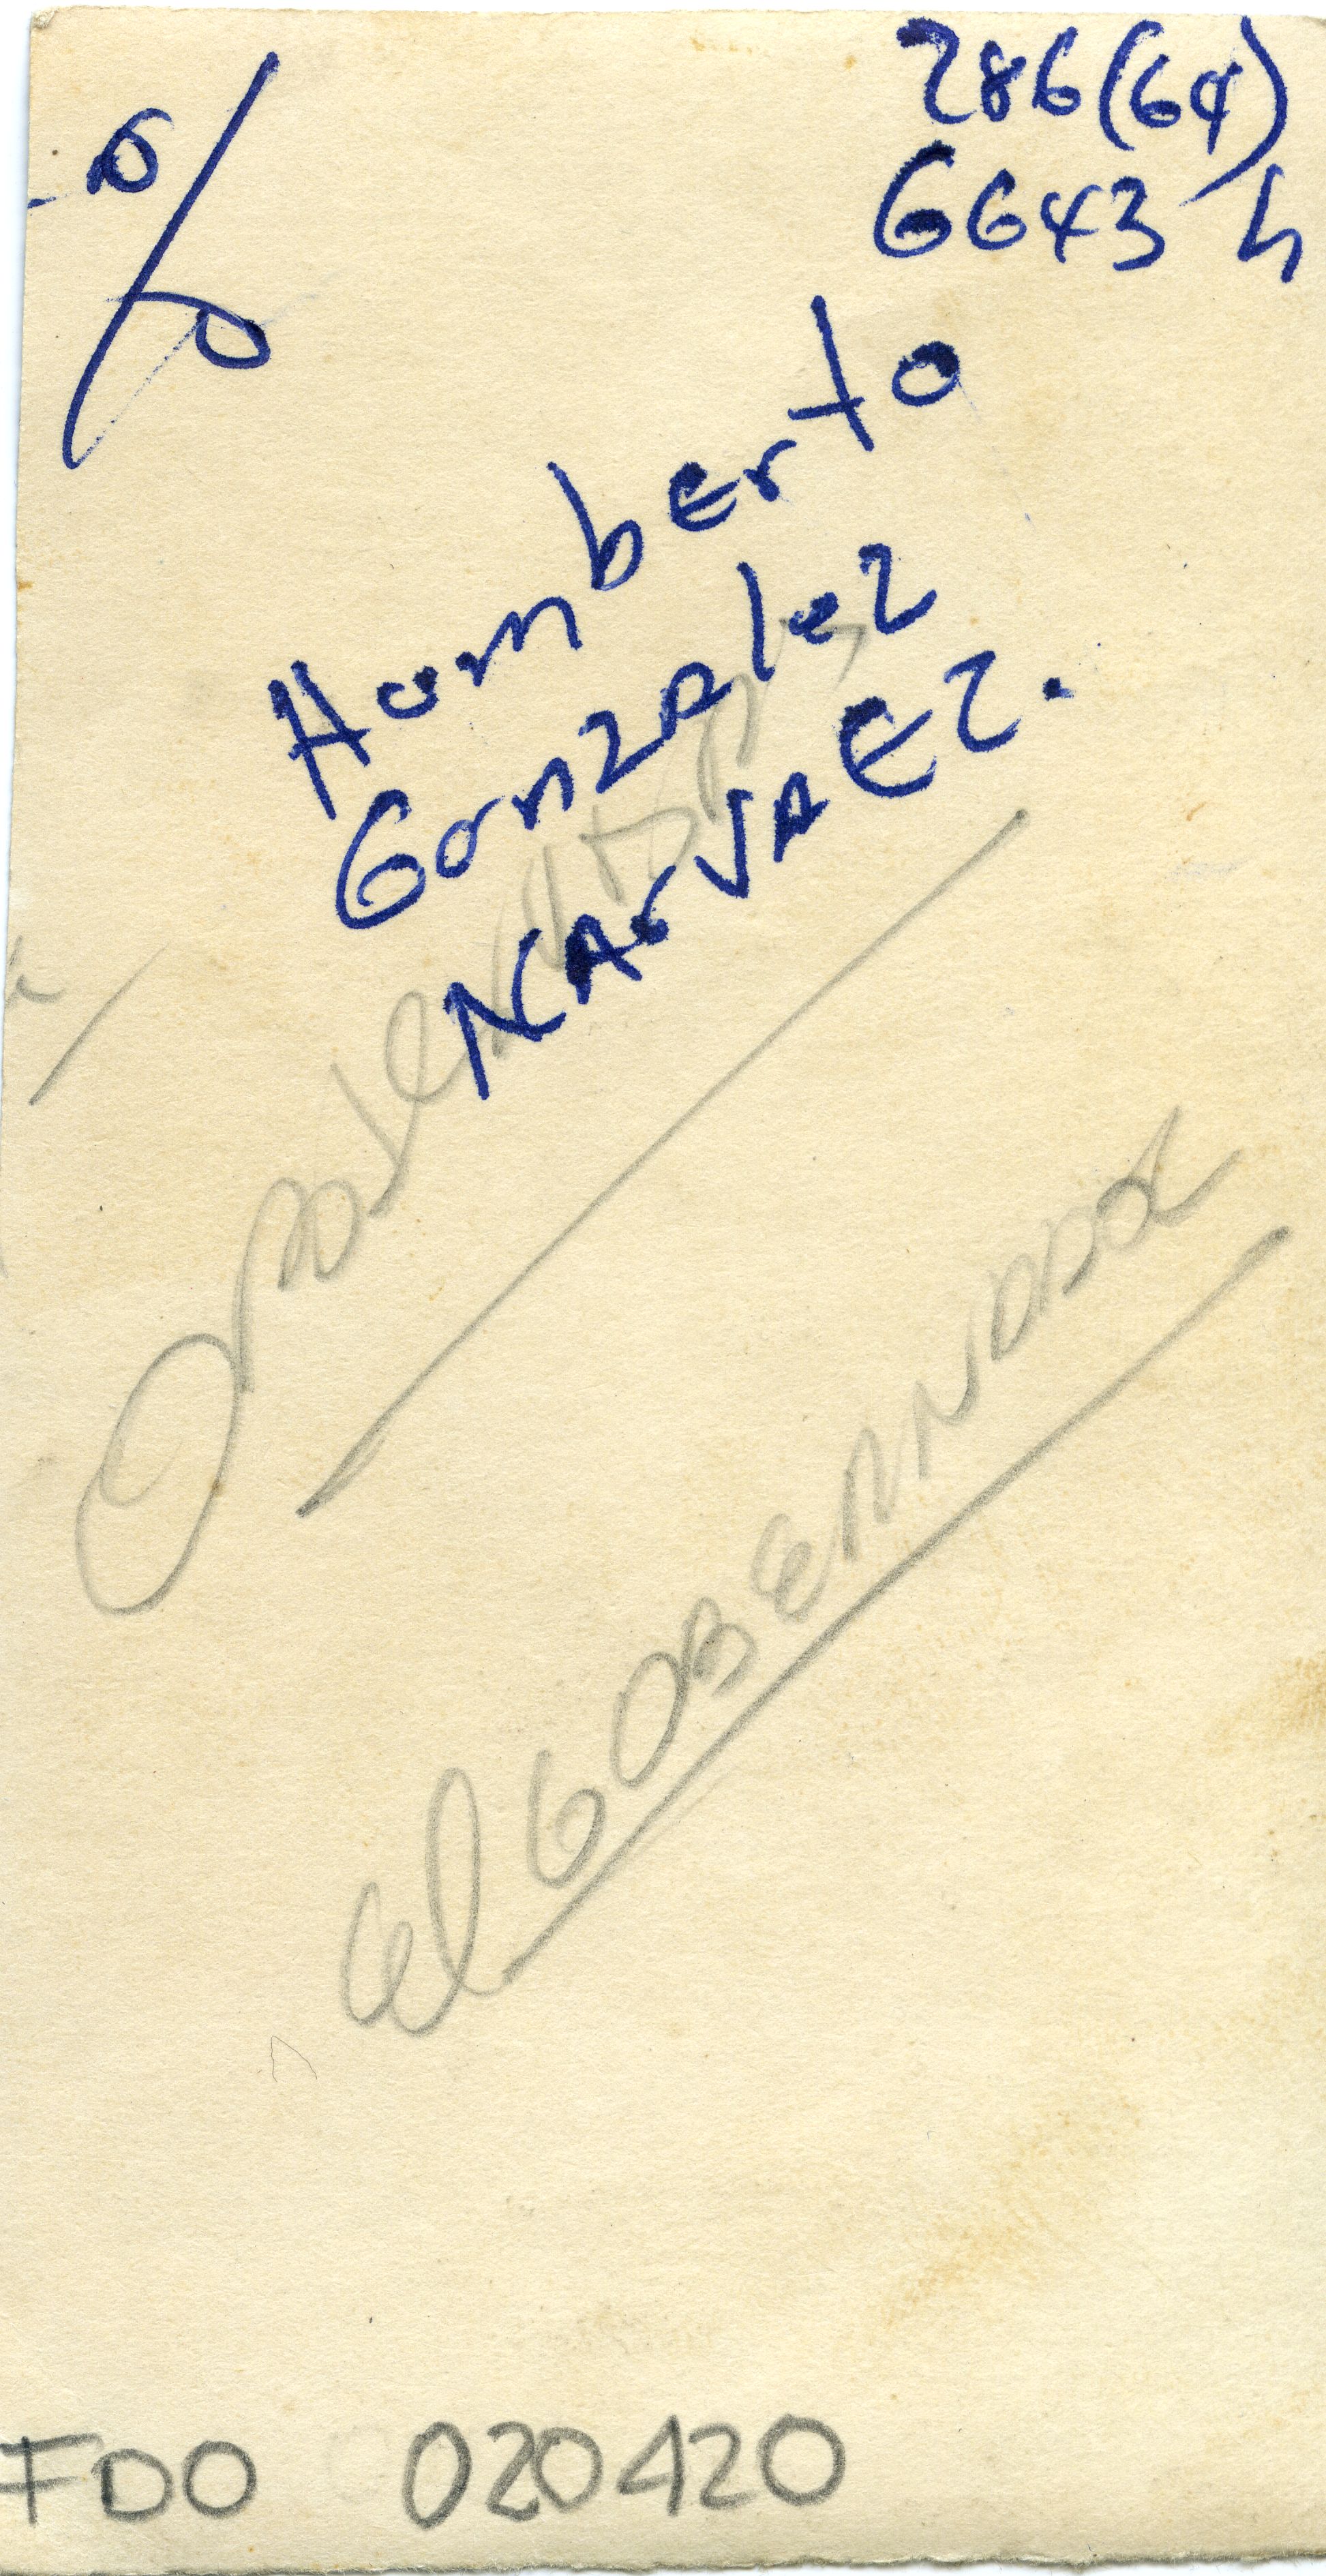 286(64)
6643 h
Humberto
Gonzalez
NArVAEZ.
el GOBERNADOR
FDO 020420